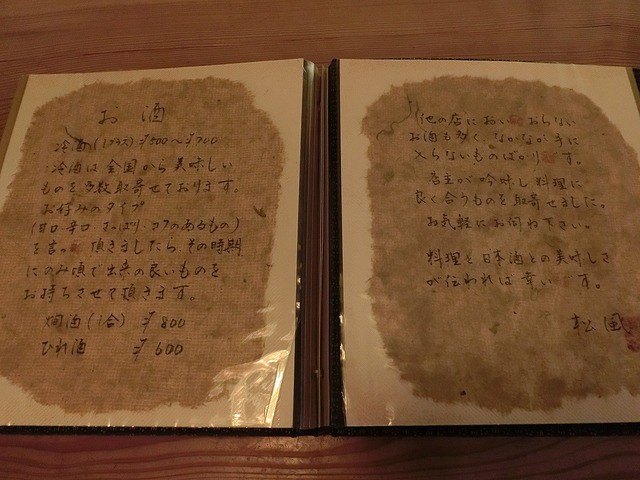 お酒
冷酒(1グラス) ¥500〜¥700
冷酒は全国から美味しい
ものを多数取寄せております。
お好みのタイプ
(甘口・辛口 さっぱり・コクのあるもの)
を言って頂きましたら、その時期
にのみ頃で出来の良いものを
お持ちさせて頂きます。
燗酒(1合) ¥800
ひれ酒 ¥600
他の店においておらない
お酒も多く、なかなか手に
入らないものばかりです。
店主が吟味し料理に
良く合うものを取寄せました。
お気軽にお伺い下さい。
料理と日本酒との美味しさ
が伝われば幸いです。
松